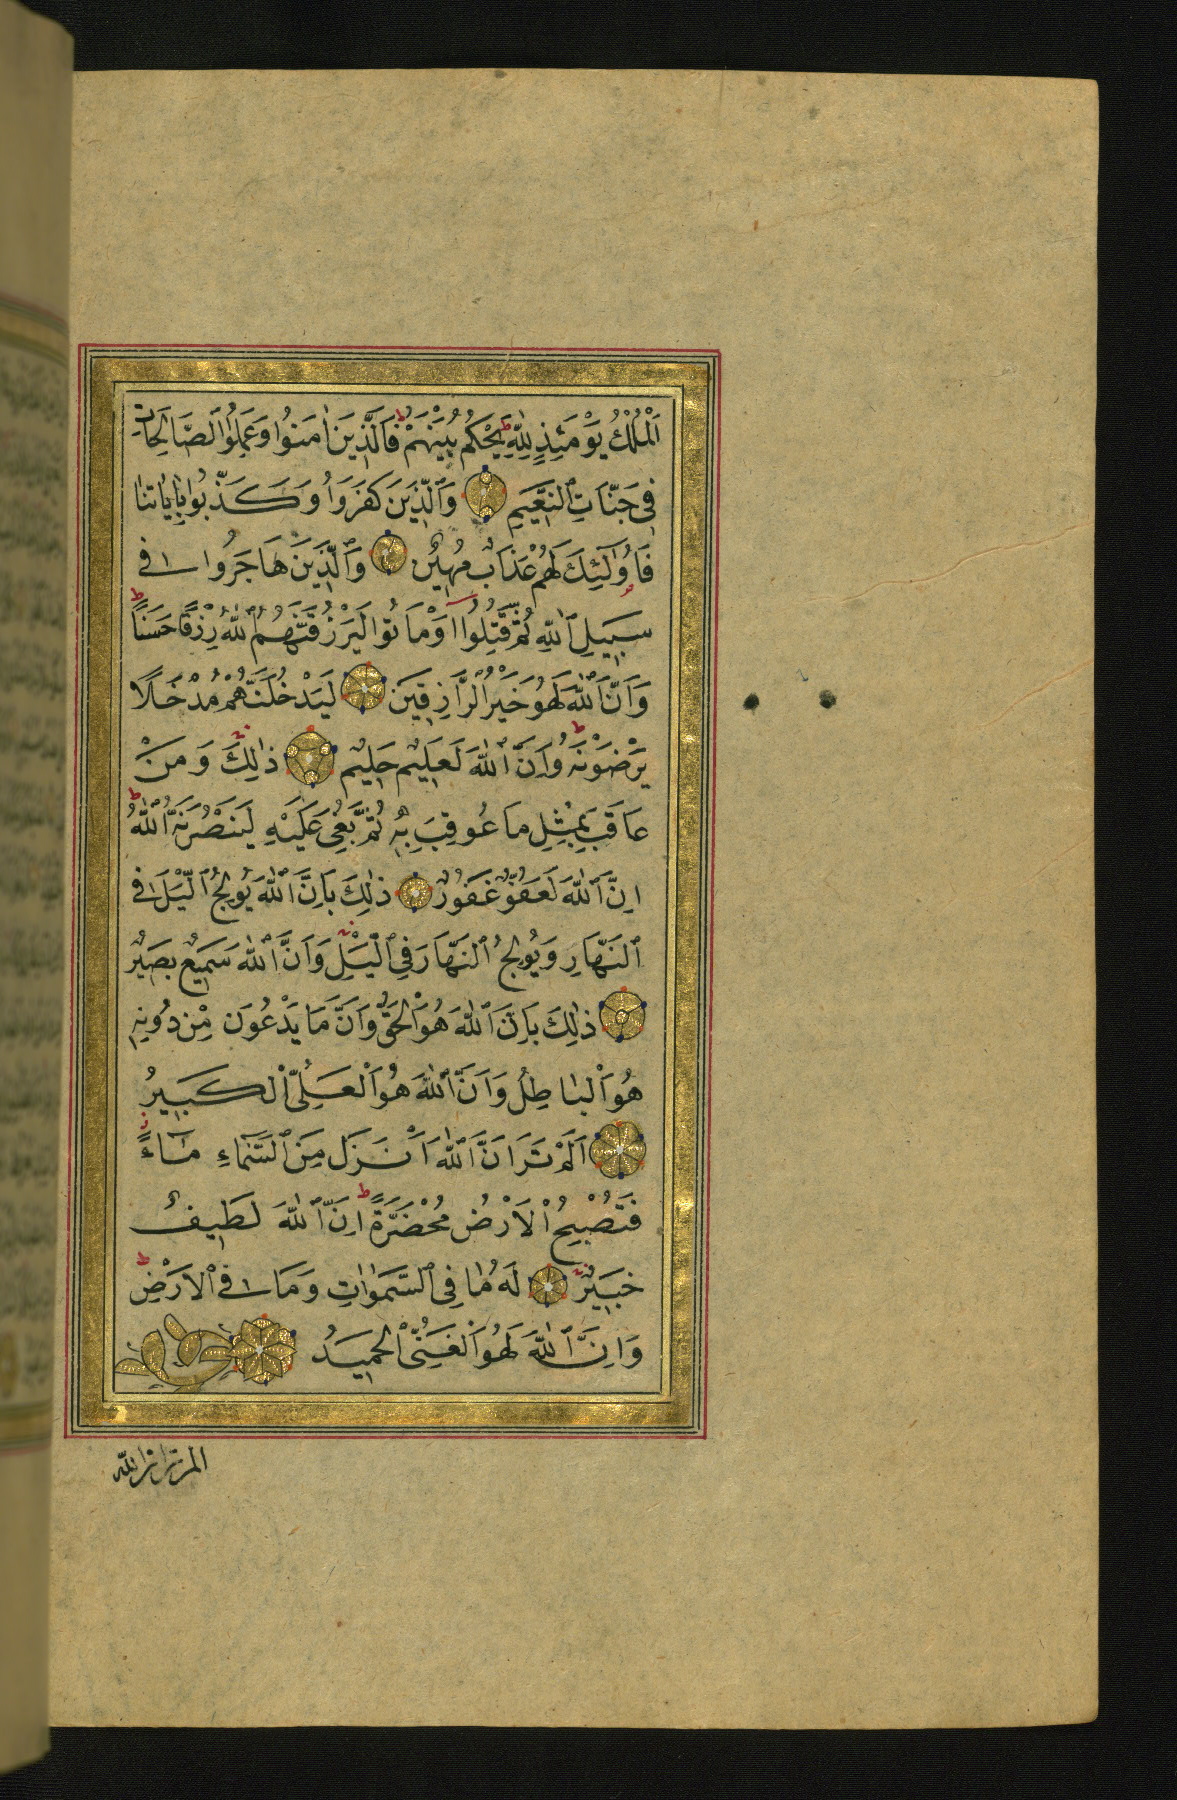 اَلْمُلْكُ يَوْمَئِذٍ لِلّٰهِ يَحْكُمُ بَيْنَهُمْ فَالَّذِينَ اٰمَنُوا وَعَمِلُوا الصَّالِحَاتِ
فِي جَنَّاتِ النَّعِيمِ وَالَّذِينَ كَفَرُوا وَكَذَّبُوا بِاٰيَاتِنَا
فَاُولٰئِكَ لَهُمْ عَذَابٌ مُهِينٌ وَالَّذِينَ هَاجَرُوا فِي
سَبِيلِ اللّٰهِ ثُمَّ قُتِلُوا اَوْ مَاتُوا لَيَرْزُقَنَّهُمُ اللّٰهُ رِزْقًا حَسَنًا
وَاِنَّ اللّٰهَ لَهُوَ خَيْرُ الرَّازِقِينَ لَيُدْخِلَنَّهُمْ مُدْخَلًا
يَرْضَوْنَهُ وَاِنَّ اللّٰهَ لَعَلِيمٌ حَلِيمٌ ذٰلِكَ وَمَنْ
عَاقَبَ بِمِثْلِ مَا عُوقِبَ بِهِ ثُمَّ بُغِيَ عَلَيْهِ لَيَنْصُرَنَّهُ اللّٰهُ
اِنَّ اللّٰهَ لَعَفُوٌّ غَفُورٌ ذٰلِكَ بِاَنَّ اللّٰهَ يُولِجُ الَّيْلَ فِي
النَّهَارِ وَيُولِجُ النَّهَارَ فِي الَّيْلِ وَاَنَّ اللّٰهَ سَمِيعٌ بَصِيرٌ
ذٰلِكَ بِاَنَّ اللّٰهَ هُوَ الْحَقُّ وَاَنَّ مَا يَدْعُونَ مِنْ دُونِهِ
هُوَ الْبَاطِلُ وَاَنَّ اللّٰهَ هُوَ الْعَلِيُّ الْكَبِيرُ
اَلَمْ تَرَ اَنَّ اللّٰهَ اَنْزَلَ مِنَ السَّمَاءِ مَاءً
فَتُصْبِحُ الْاَرْضُ مُخْضَرَّةً اِنَّ اللّٰهَ لَطِيفٌ
خَبِيرٌ لَهُ مَا فِي السَّمٰوَاتِ وَمَا فِي الْاَرْضِ
وَاِنَّ اللّٰهَ لَهُوَ الْغَنِيُّ الْحَمِيدُ
الم تر ان الله